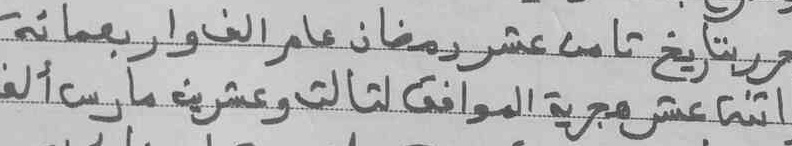 حرر بتاريخ تامن عشر رمضان عام الف واربعمائة
اتنى عشر هجرية الموافق لتالت وعشرين مارس ألف